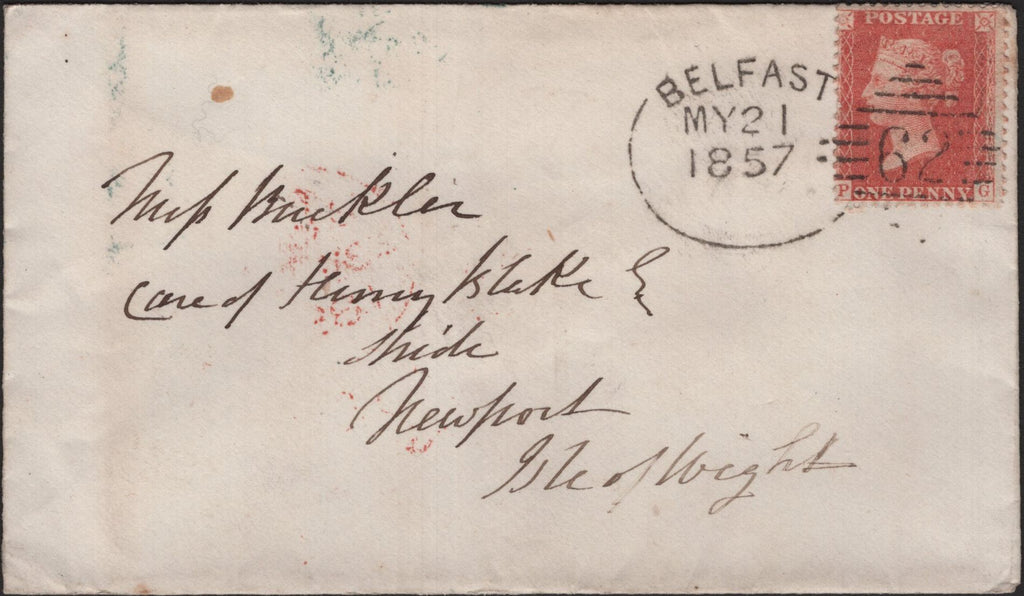 POSTAGE
BELFAST
MY 21
1857
62
P ONE PENNY G
Miss Buckler
Care of Henry Blake E
Shide
Newport
Isle of Wight